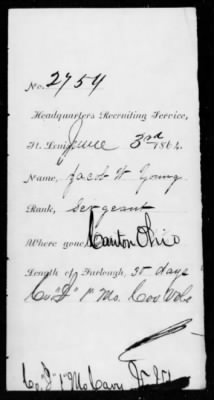 No. 2754
Headquarters Recruiting Service,
St. Louis June 3rd 1864.
Name, Jacob W Young
Rank, Sergeant
Where gone, Canton Ohio
Length of Furlough, 30 days
Co "F" 1" Mo. Cav Vols
1" Mo Cav